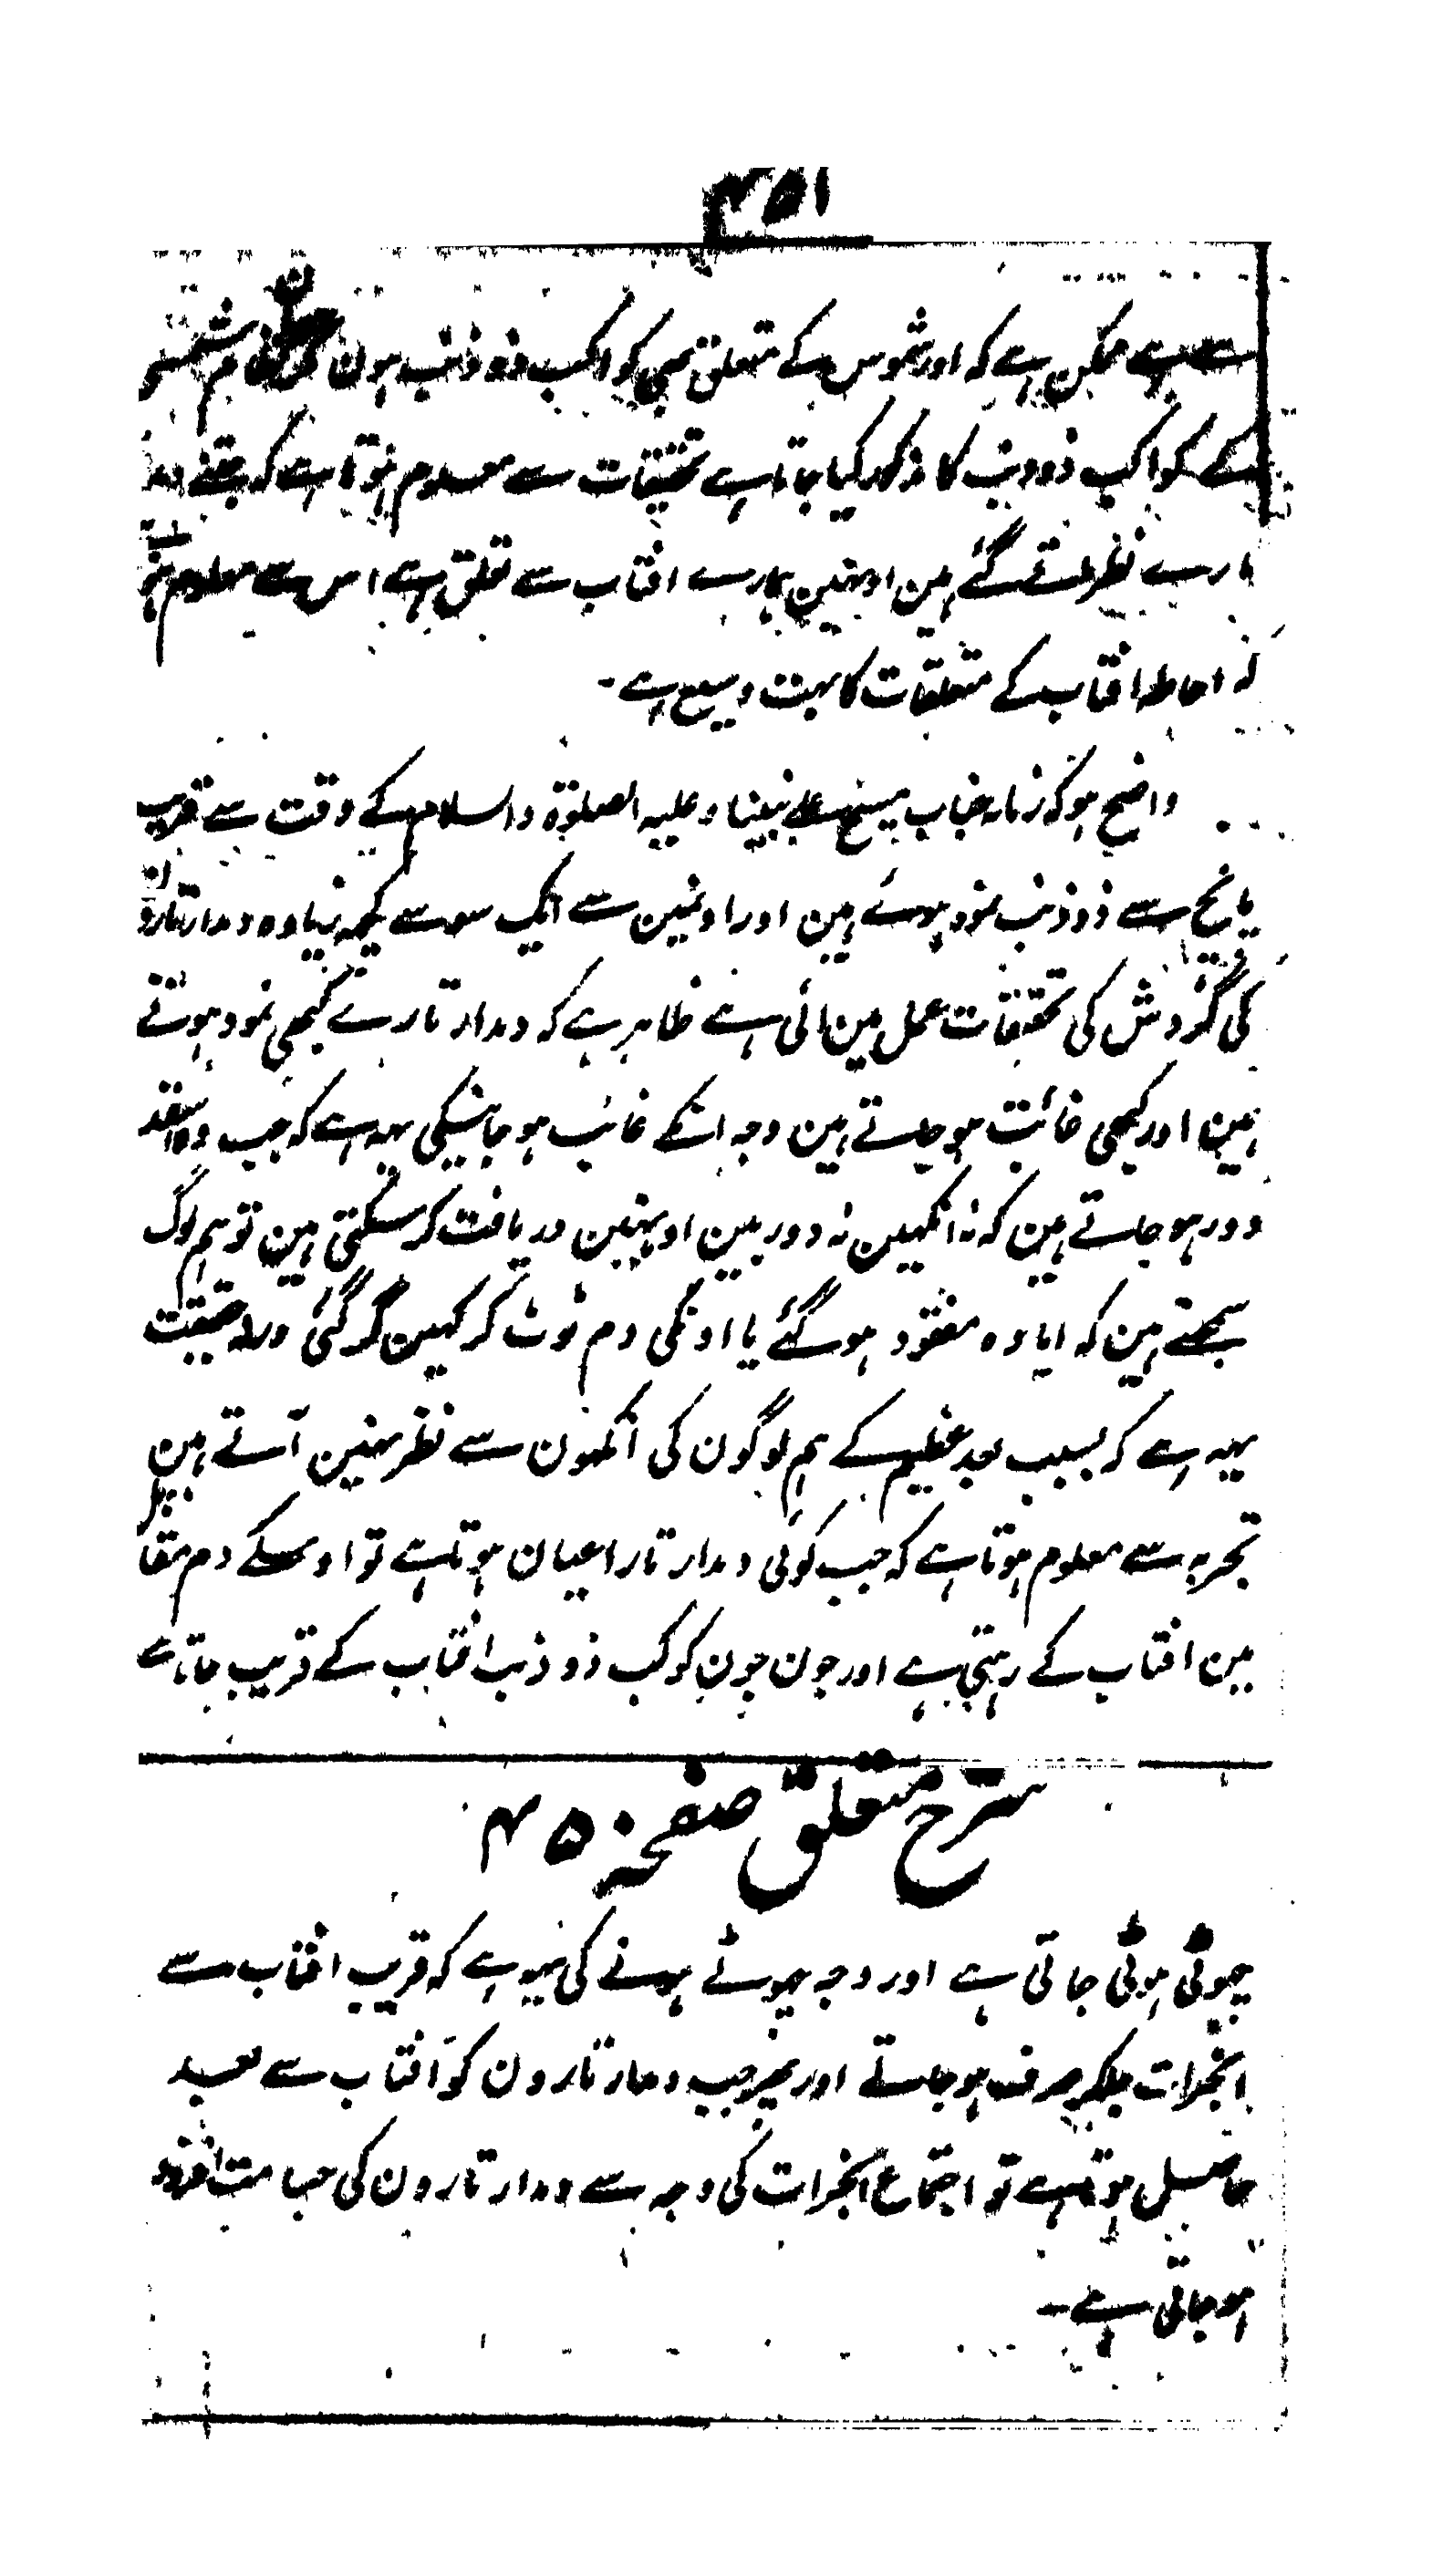 ۴۵۱
سے ہے ممکن ہے کہ اور شموس کے متعلق بھی کواکب ذو ذنب ہون نظام شمسی
کے کواکب ذو ذنب کا مذکور کیا جاتا ہے تحقیقات سے معلوم ہوتا ہے کہ جتنے
تارے نظر آتے گئے ہین اونہین ہمارے افتاب سے تعلق ہے اس سے معلوم ہوتا
کہ احاطہ افتاب کے متعلقات کا بہت وسیع ہے ۔
واضح ہو کہ زمانہ جناب مسیح علے نبینا و علیہ الصلوٰۃ والسلام کے وقت سے قریب
پانچ سے ذو ذنب نمود ہوئے ہین اور اونمین سے ایک سو سے کچہ زیادہ دمدار تارون
کی گردش کی تحقیقات عمل مین ائی ہے ظاہر ہے کہ دمدار تارے کبھی نمود ہوتے
ہین اور کبھی غائب ہو جاتے ہین وجہ انکے غائب ہو جانیکی یہہ ہے کہ جب وہ اسقدر
دور ہو جاتے ہین کہ نہ انکہین نہ دوربین اونہین دریافت کر سکتی ہین تو ہم لوگ
سمجتے ہین کہ ایا وہ مفقود ہو گئے یا اونکی دم ٹوٹ کر کہین گر گئی ورنہ حقیقت
یہہ ہے کہ بسبب بعد عظیم کے ہم لوگون کی انکہون سے نظر نہین آتے ہین
تجربہ سے معلوم ہوتا ہے کہ جب کوئی دمدار تارا عیان ہوتا ہے تو اوسکے دم مقابل
مین افتاب کے رہتی ہے اور جون جون کوکب ذو ذنب افتاب کے قریب جاتا ہے
شرح متعلق صفحہ ۴۵۰
چھوٹی ہوتی جاتی ہے اور وجہ چھوٹے ہونے کی یہہ ہے کہ قریب افتاب سے
ابخرات جلکر صرف ہو جاتے اور پھر جب دمدار تارون کو آفتاب سے بعید
حاصل ہوتا ہے تو اجتماع ابخرات کی وجہ سے دمدار تارون کی جسامت افزود
ہو جاتی ہے ۔